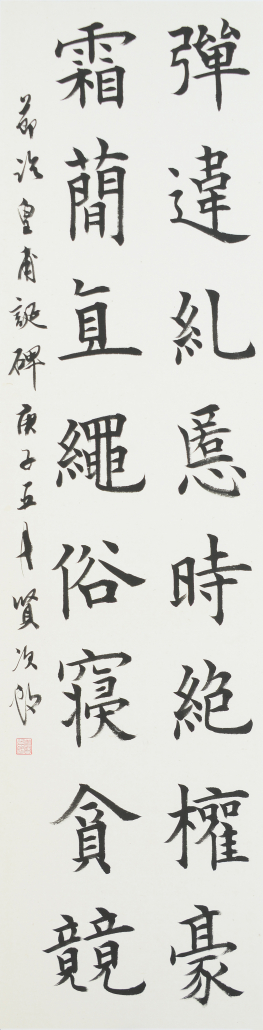 彈違糺慝時絶權豪
霜簡直繩俗寢貪競
節臨皇甫誕碑 庚子五月 賢次郎